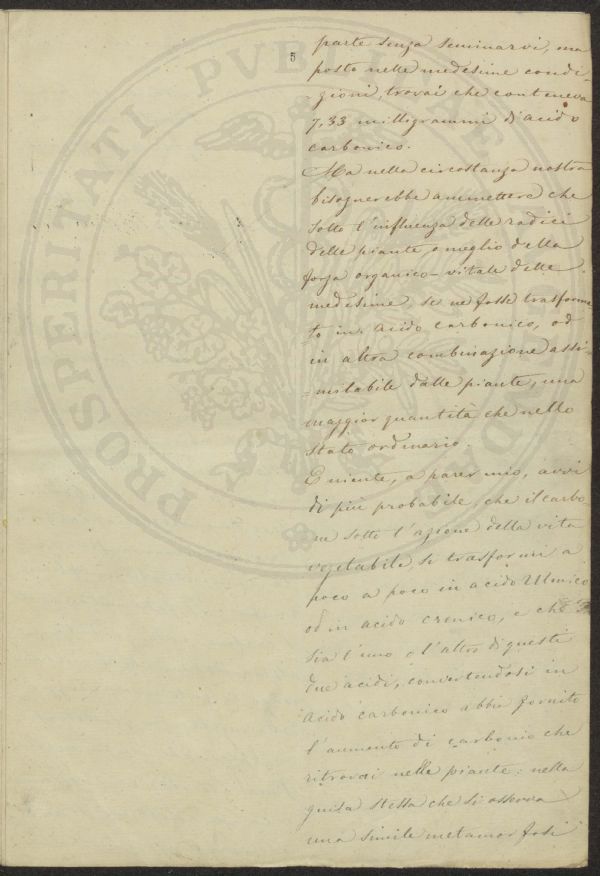 5
parte senza seminarvi, ma
posto nelle medesime condi-
-zioni, trovai che conteneva
7,33 milligrammi di acido
carbonico.
Ma nella circostanza nostra
bisognerebbe ammettere che
sotto l'influenza delle radici
delle piante, o meglio della
forza organico-vitale delle
medesime, se ne fosse trasforma
to in acido carbonico, od
in altra combinazione assi-
=milabile dalle piante, una
maggior quantità che nello
stato ordinario.
E niente, a parer mio, avvi
di più probabile, che il carbo
ne sotto l'azione della vita
vegetabile, si trasformi a
poco a poco in acido Ulmico
od in acido crenico, e che
sia l'uno o l'altro di questi
due acidi, convertendosi in
acido carbonico abbia fornito
l'aumento di carbonio che
ritrovai nelle piante: nella
guisa stessa che si osserva
una simile metamorfosi
PROSPERITATI PVBLICAE